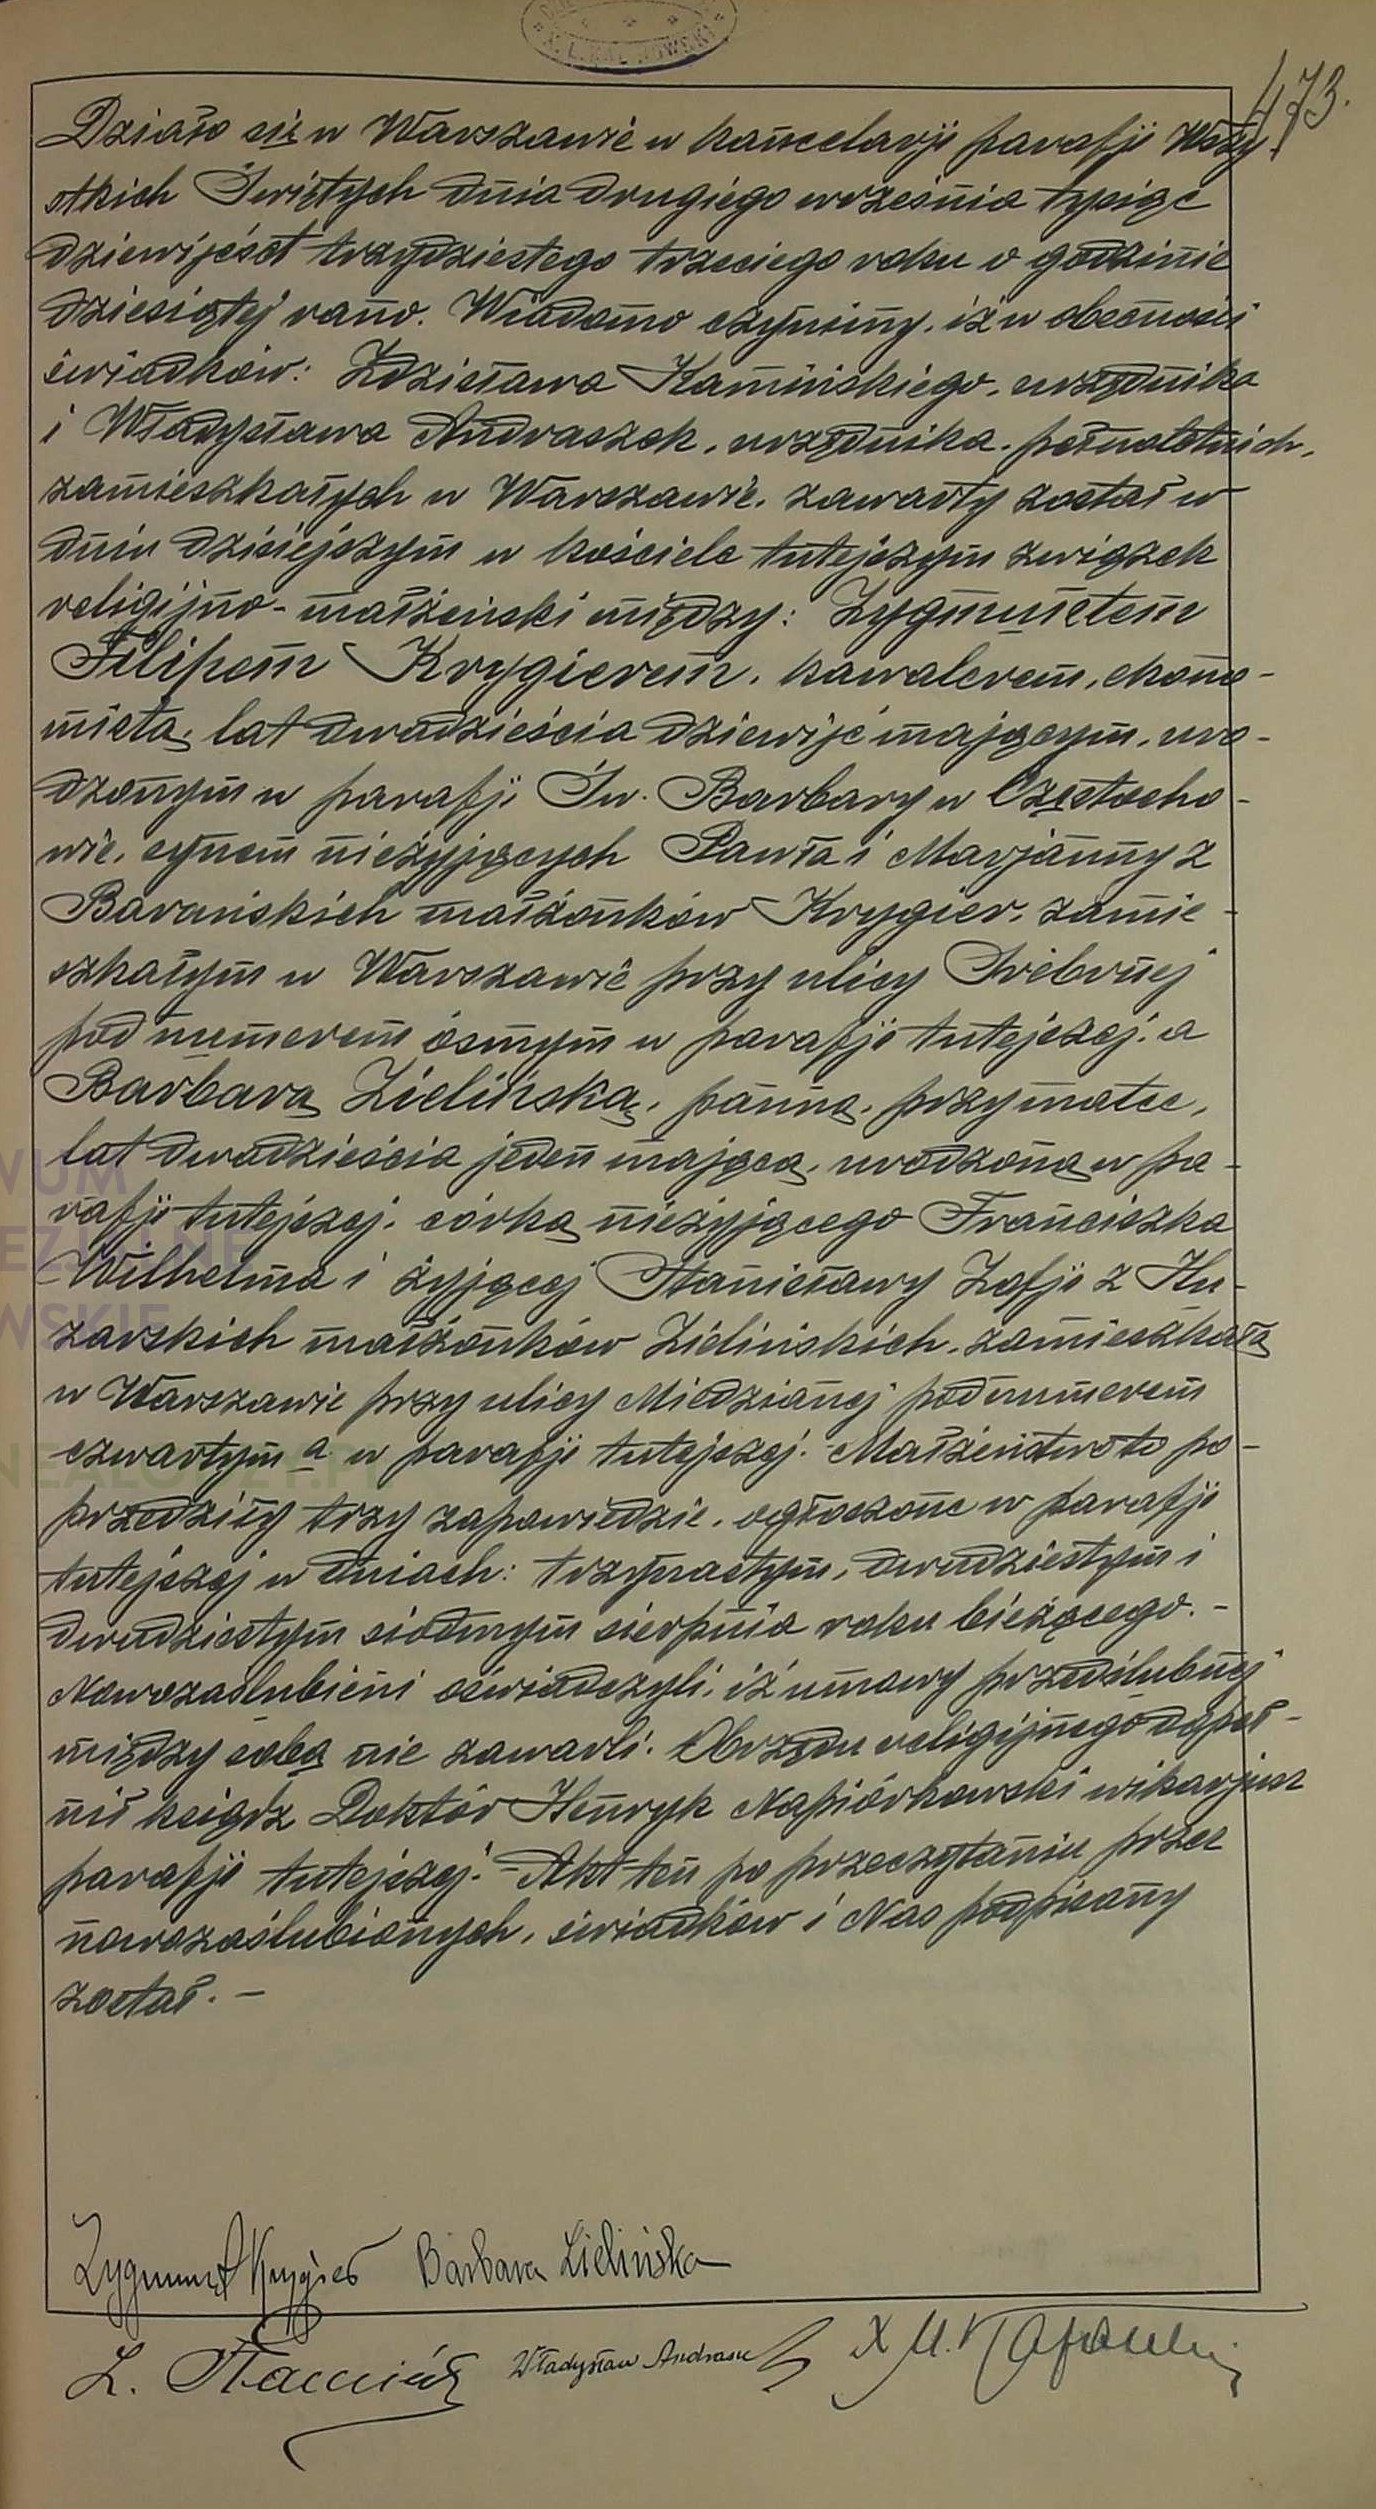 473.
Działo się w Warszawie w kancelarji parafji Wszy-
stkich Świętych dnia drugiego września tysiąc
dziewięćset trzydziestego trzeciego roku o godzinie
dziesiątej rano. Wiadomo czynimy, iż w obecności
świadków: Zdzisława Kamińskiego, urzędnika
i Władysława Andraszek, urzędnika, pełnoletnich,
zamieszkałych w Warszawie, zawarty został w
dniu dzisiejszym w kościele tutejszym związek
religijno-małżeński między: Zygmuntem
Filipem Krygierem, kawalerem, ekono-
mistą, lat dwadzieścia dziewięć mającym, uro-
dzonym w parafji Św. Barbary w Częstocho-
wie, synem nieżyjących Pawła i Marjanny z
Barańskich małżonków Krygier, zamie-
szkałym w Warszawie przy ulicy Srebrnej
pod numerem ósmym w parafji tutejszej, a
Barbarą Zielińską, panną, przy matce,
lat dwadzieścia jeden mającą, urodzoną w pa-
rafji tutejszej, córką nieżyjącego Franciszka
Wilhelma i żyjącej Stanisławy Zofji z Hu-
zarskich małżonków Zielińskich, zamieszkałą
w Warszawie przy ulicy Miedzianej pod numerem
czwartym a w parafji tutejszej. Małżeństwo to po-
przedziły trzy zapowiedzie, ogłoszone w parafji
tutejszej w dniach: trzynastym, dwudziestym i
dwudziestym siódmym sierpnia roku bieżącego. -
Nowozaślubieni oświadczyli, iż umowy przedślubnej
między sobą nie zawarli. Obrzędu religijnego dopeł-
nił ksiądz Doktór Henryk Napiórkowski wikarjusz
parafji tutejszej. - Akt ten po przeczytaniu przez
nowozaślubionych, świadków i Nas podpisany
został. -
Zygmunt Krygier Barbara Zielińska
Z. Kamiński Władysław Andrasz